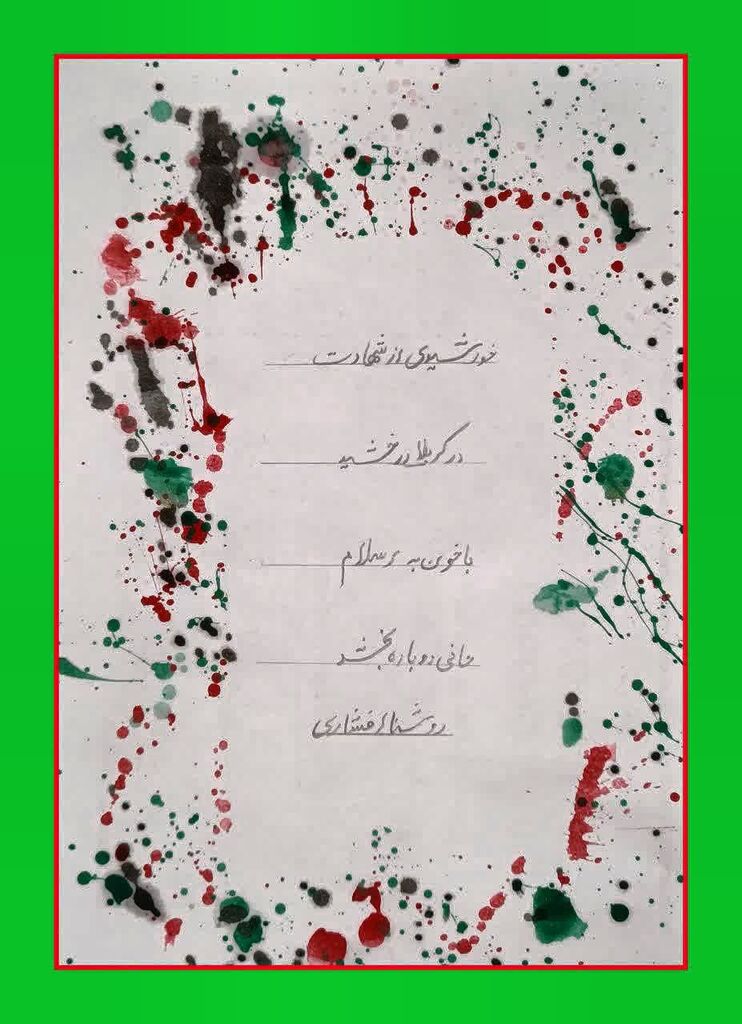 خورشیدی از شهادت
در کربلا درخشید
با خون به اسلام
جانی دوباره بخشد
روشنا افشاری